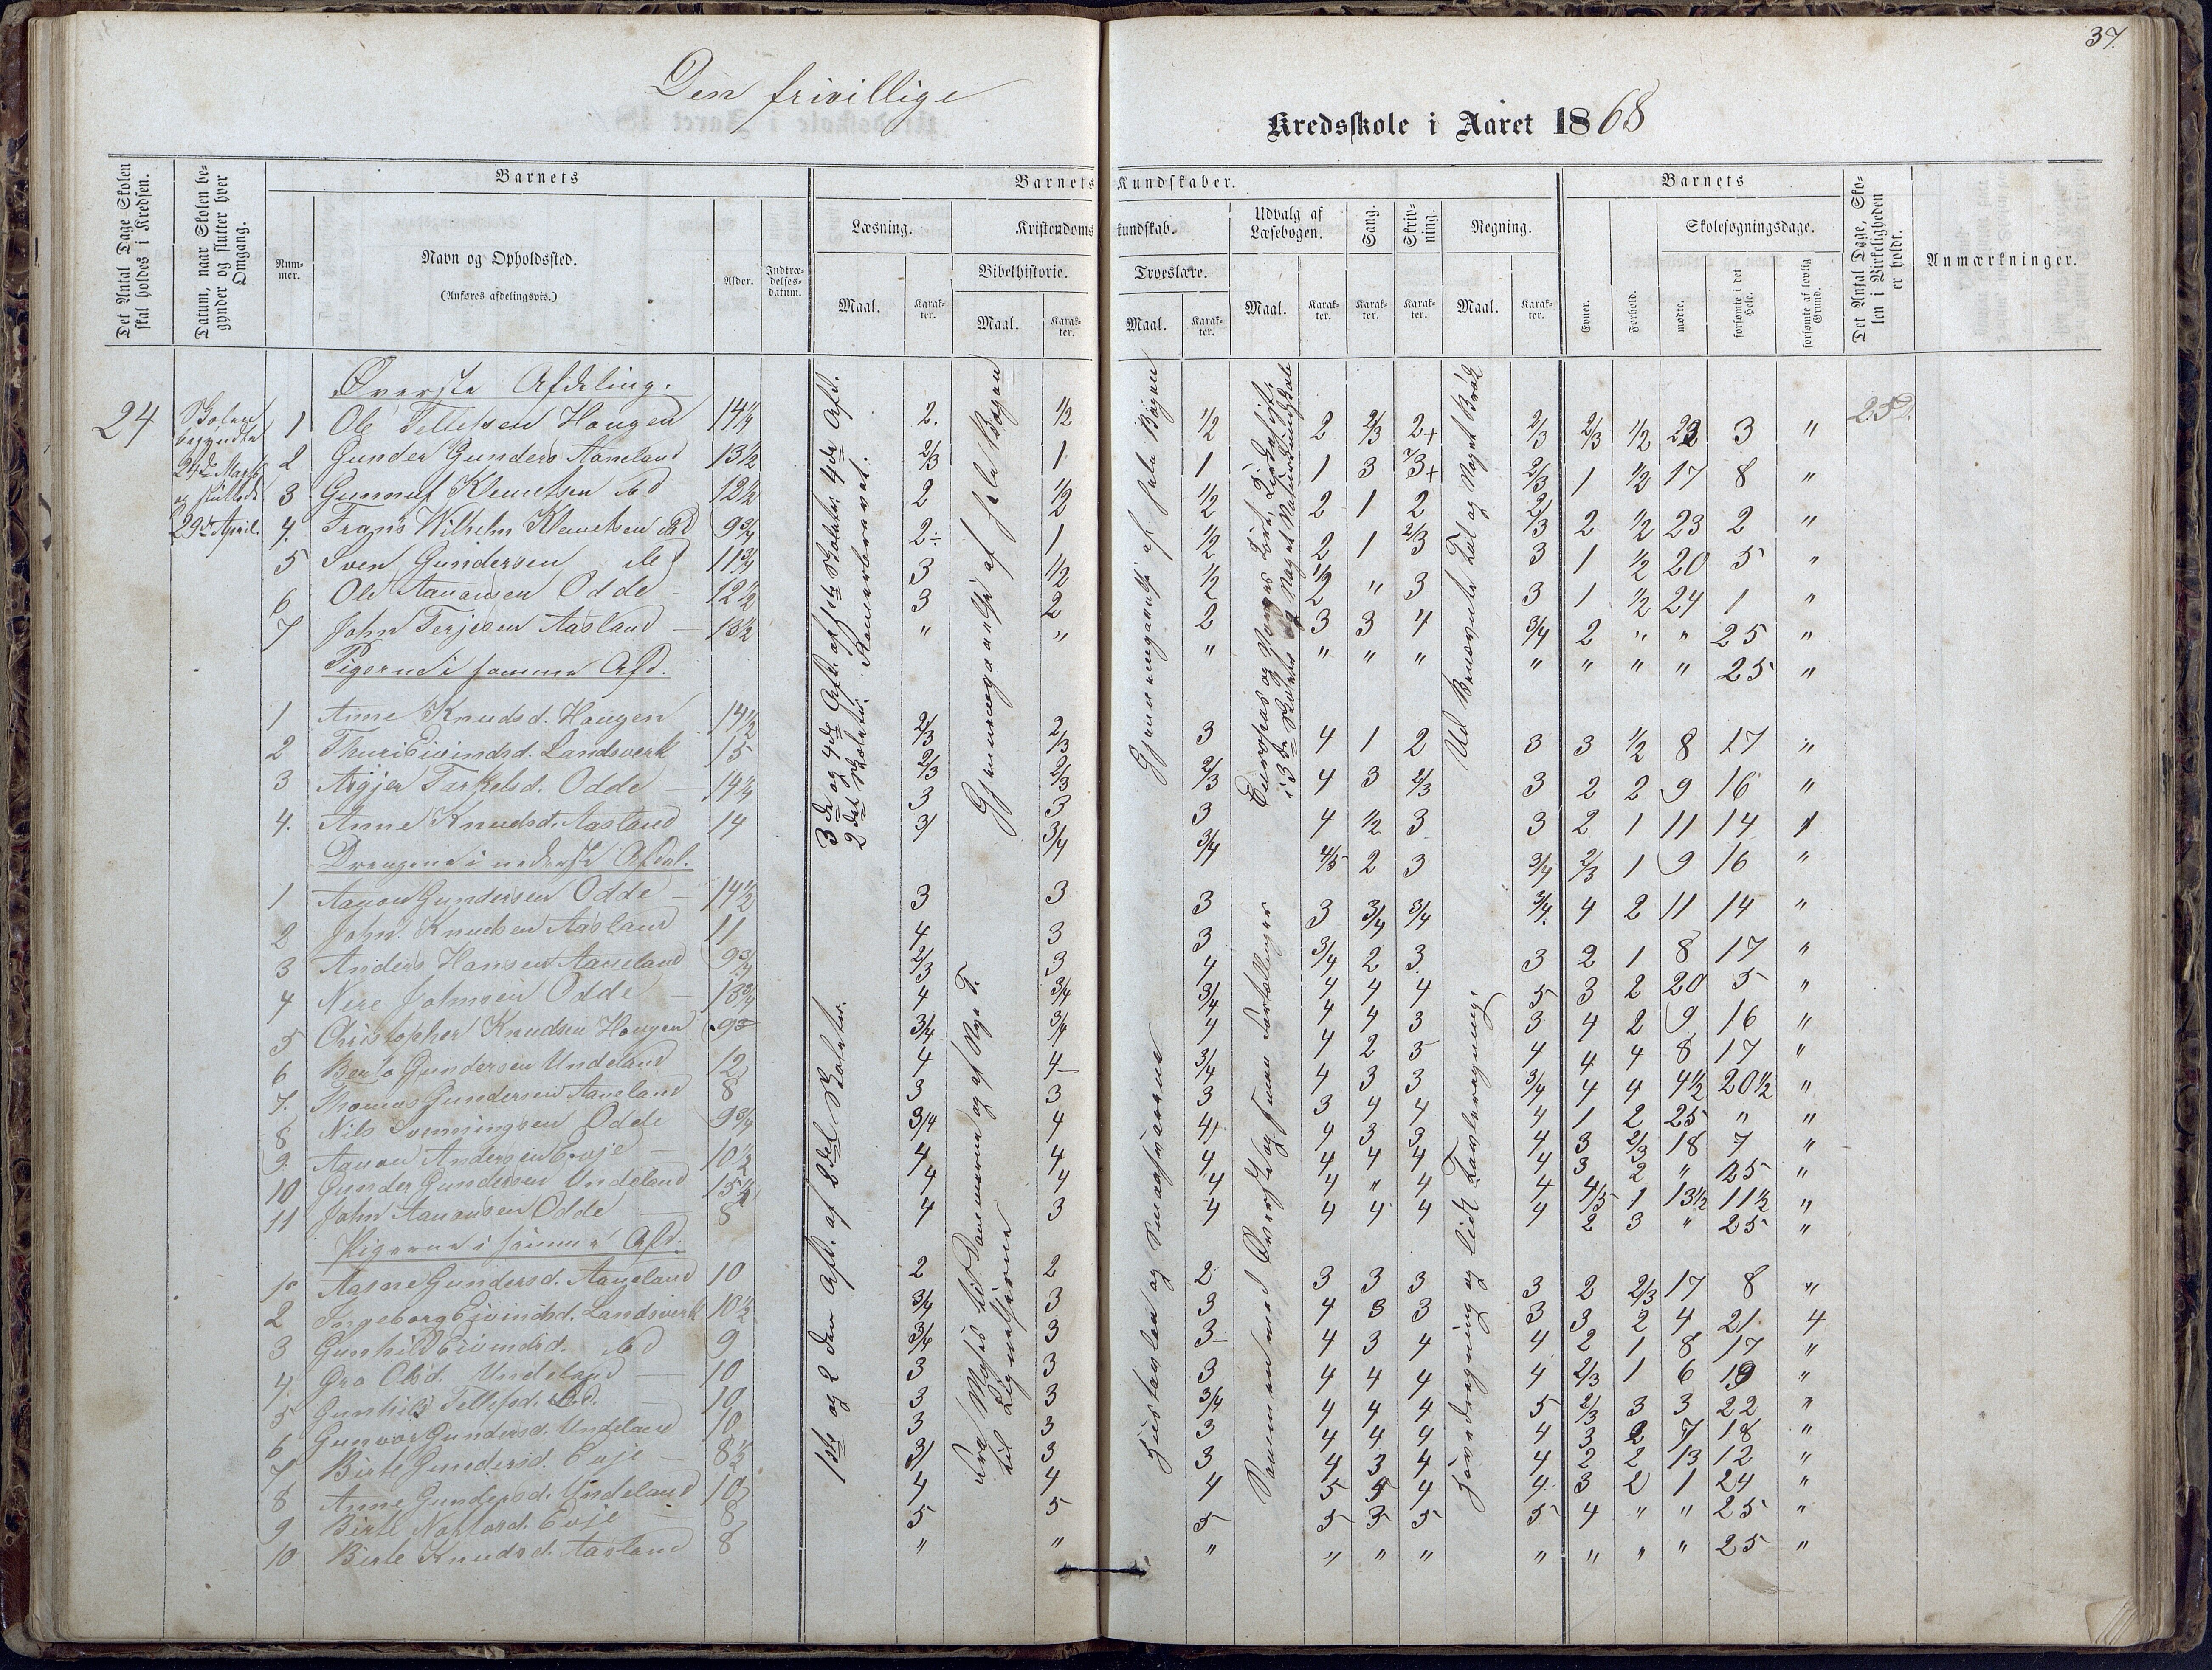 37.
Den frivillige
Kredsskole i Aaret 1868
Det Antal Dage Skolen skal holdes i Kredsen.
Datum, naar Skolen begynder og slutter hver Omgang.
Barnets
Nummer.
Navn og Opholdssted.
(Anføres afdelingsvis.)
Alder.
Indtrædelsesdatum.
Barnets Kundskaber.
Læsning.
Maal.
Karakter.
Kristendomskundskab.
Bibelhistorie.
Maal.
Karakter.
Troeslære.
Maal.
Karakter.
Udvalg af Læsebogen.
Maal.
Karakter.
Sang.
Karakter.
Skrivning.
Karakter.
Regning.
Maal.
Karakter.
Barnets
Evner.
Forhold.
Skolesøgningsdage.
mødte.
forsømte i det Hele.
forsømte af lovlig Grund.
Det Antal Dage, Skolen i Virkeligheden er holdt.
Anmærkninger.
Øverste Afdeling.
24 Skolen begyndte 24de Marts og sluttede 29de April.
1 Ole Tellefsen Haugen 14¼ 2. 1/2 1/2 2 2/3 2+ 2/3 2/3 1/2 22 3 "
2 Gunder Gunders Aaneland 13½ 2/3 1 1 1 3 3+ 2/3 1 1/2 17 8 "
3 Gunnuf Klemetsen ibd 12½ 2 1/2 1/2 2 1 2 2/3 2 1/2 23 2 "
4. Frans Wilhelm Klemetsen ibd 9¾ 2÷ 1 1/2 2 1 2/3 3 1 1/2 20 5 "
5 Sven Gundersen ibd 11¾ 3 1/2 1/2 1/2 " 3 3 1 1/2 24 1 "
6 Ole Aanonsen Odde 12½ 3 2 2 3 3 4 3/4 2 " " 25 "
7 John Terjesen Aasland 13½ " " " " " " " " " " 25 "
Pigerne i samme Afd.
1 Anne Knudsd. Haugen 14½ 2/3 2/3 3 4 1 2 3 3 1/2 8 17 "
2 Thuri Eivindsd. Landsverk 15 2/3 2/3 2/3 4 3 2/3 3 2 2 9 16 "
3 Asgjer Tarkelsd. Odde 14¼ 3 3 3 4 1/2 3 3 2 1 11 14 "
4. Anne Knudsd. Aasland 14 3/ 3/4 3/4 4/5 2 3 3/4 2/3 1 9 16 "
Drengene i nederste Afdel.
1 Aanon Gundersen Odde 14½ 3 3 3 3 3/4 3/4 3/4. 4 2 11 14 "
2 John Knudsen Aasland 11 4 3 3 3/4 2 3 3 2 1 8 17 "
3 Anders Hansen Aaneland 9¾ 2/3 3 4 4 4 4 5 3 2 20 5 "
4 Nere Johnsen Odde 13¾ 4 3/4 3/4 4 4 3 3 4 2 9 16 "
5 Christopher Knudsen Haugen 9 3/4 3/4 4 4 2 5 4 4 4 8 17 "
6 Bento Gundersen Undeland 12 4 4 3/4 4 3 3 3/4 4 4 4½ 20½ "
7. Thomas Gundersen Aaneland 8 3 3 3 3 4 4 4 1 2 25 " "
8 Nils Svenningsen Odde 9¾ 3/4 4 4 4 3 3 4 3 2/3 18 7 "
9. Aanon Andersen Evje 10½ 4 4 4 4 4 4 4 3 2 " 25 "
10 Gunder Gundersen Undeland 13½ 4 4 4 4 " 4 4 4/5 1 13½ 11½ "
11 John Aanonsen Odde 8 4 3 4 4 4 4 4 2 3 " 25 "
Pigerne i samme Afd.
1 Aasne Gundersd. Aaneland 10 2 2 2 3 3 3 3 2 2/3 17 8 "
2 Ingeborg Eivindsd. Landsverk 10½ 3/4 3 3 4 3 3 3 3 2 4 21 4
3 Gunhild Eivindsd. ibd 9 3/4 3 3 4 3 4 4 2 1 8 17 "
4 Gro Olsd. Undeland 10 3 3 3 4 4 4 4 2/3 1 6 19 "
5 Gunhild Tellefsd. ibd. 10 3 3 3/4 4 4 4 5 2/3 3 3 22 "
6 Gunvor Gundersd. Undeland 10 3 3 3 4 4 4 4 3 2 7 18 "
7 Birte Gundersd. Evje 8½ 3/ 3 3 4 3 4 4 2 2 13 12 "
8 Anne Gundersd. Undeland 10 4 4 4 5 5 4 4. 3 2 1 24 "
9 Birte Evje 8 5 5 5 5 3 5 5 4 " " 25 "
10 Birte Knudsd. Aasland 8 " " " " " " " " " " 25 "
3de og 4de Afd. af 1ste Skoletr. 4de Afd. 2det Skoletr.
Gjennemgaaelse af hele Bogen
Gjennemgaaelse af hele Bogen
Ud Benævnte Tal og Noget Brøk
1ste og 2den Afd. af 2det Skoletr.
Fra Moses til Dommerne og af Nye T. til Lignelserne
Hustavlen og
Hovedregning og lidt Tavleregning.